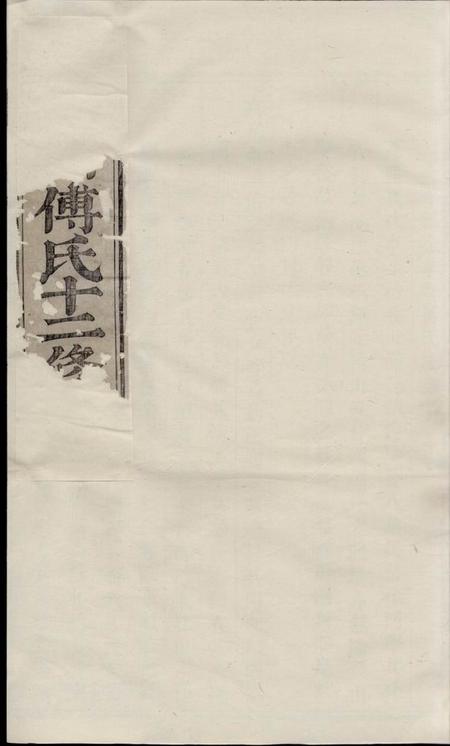 傅氏十二修